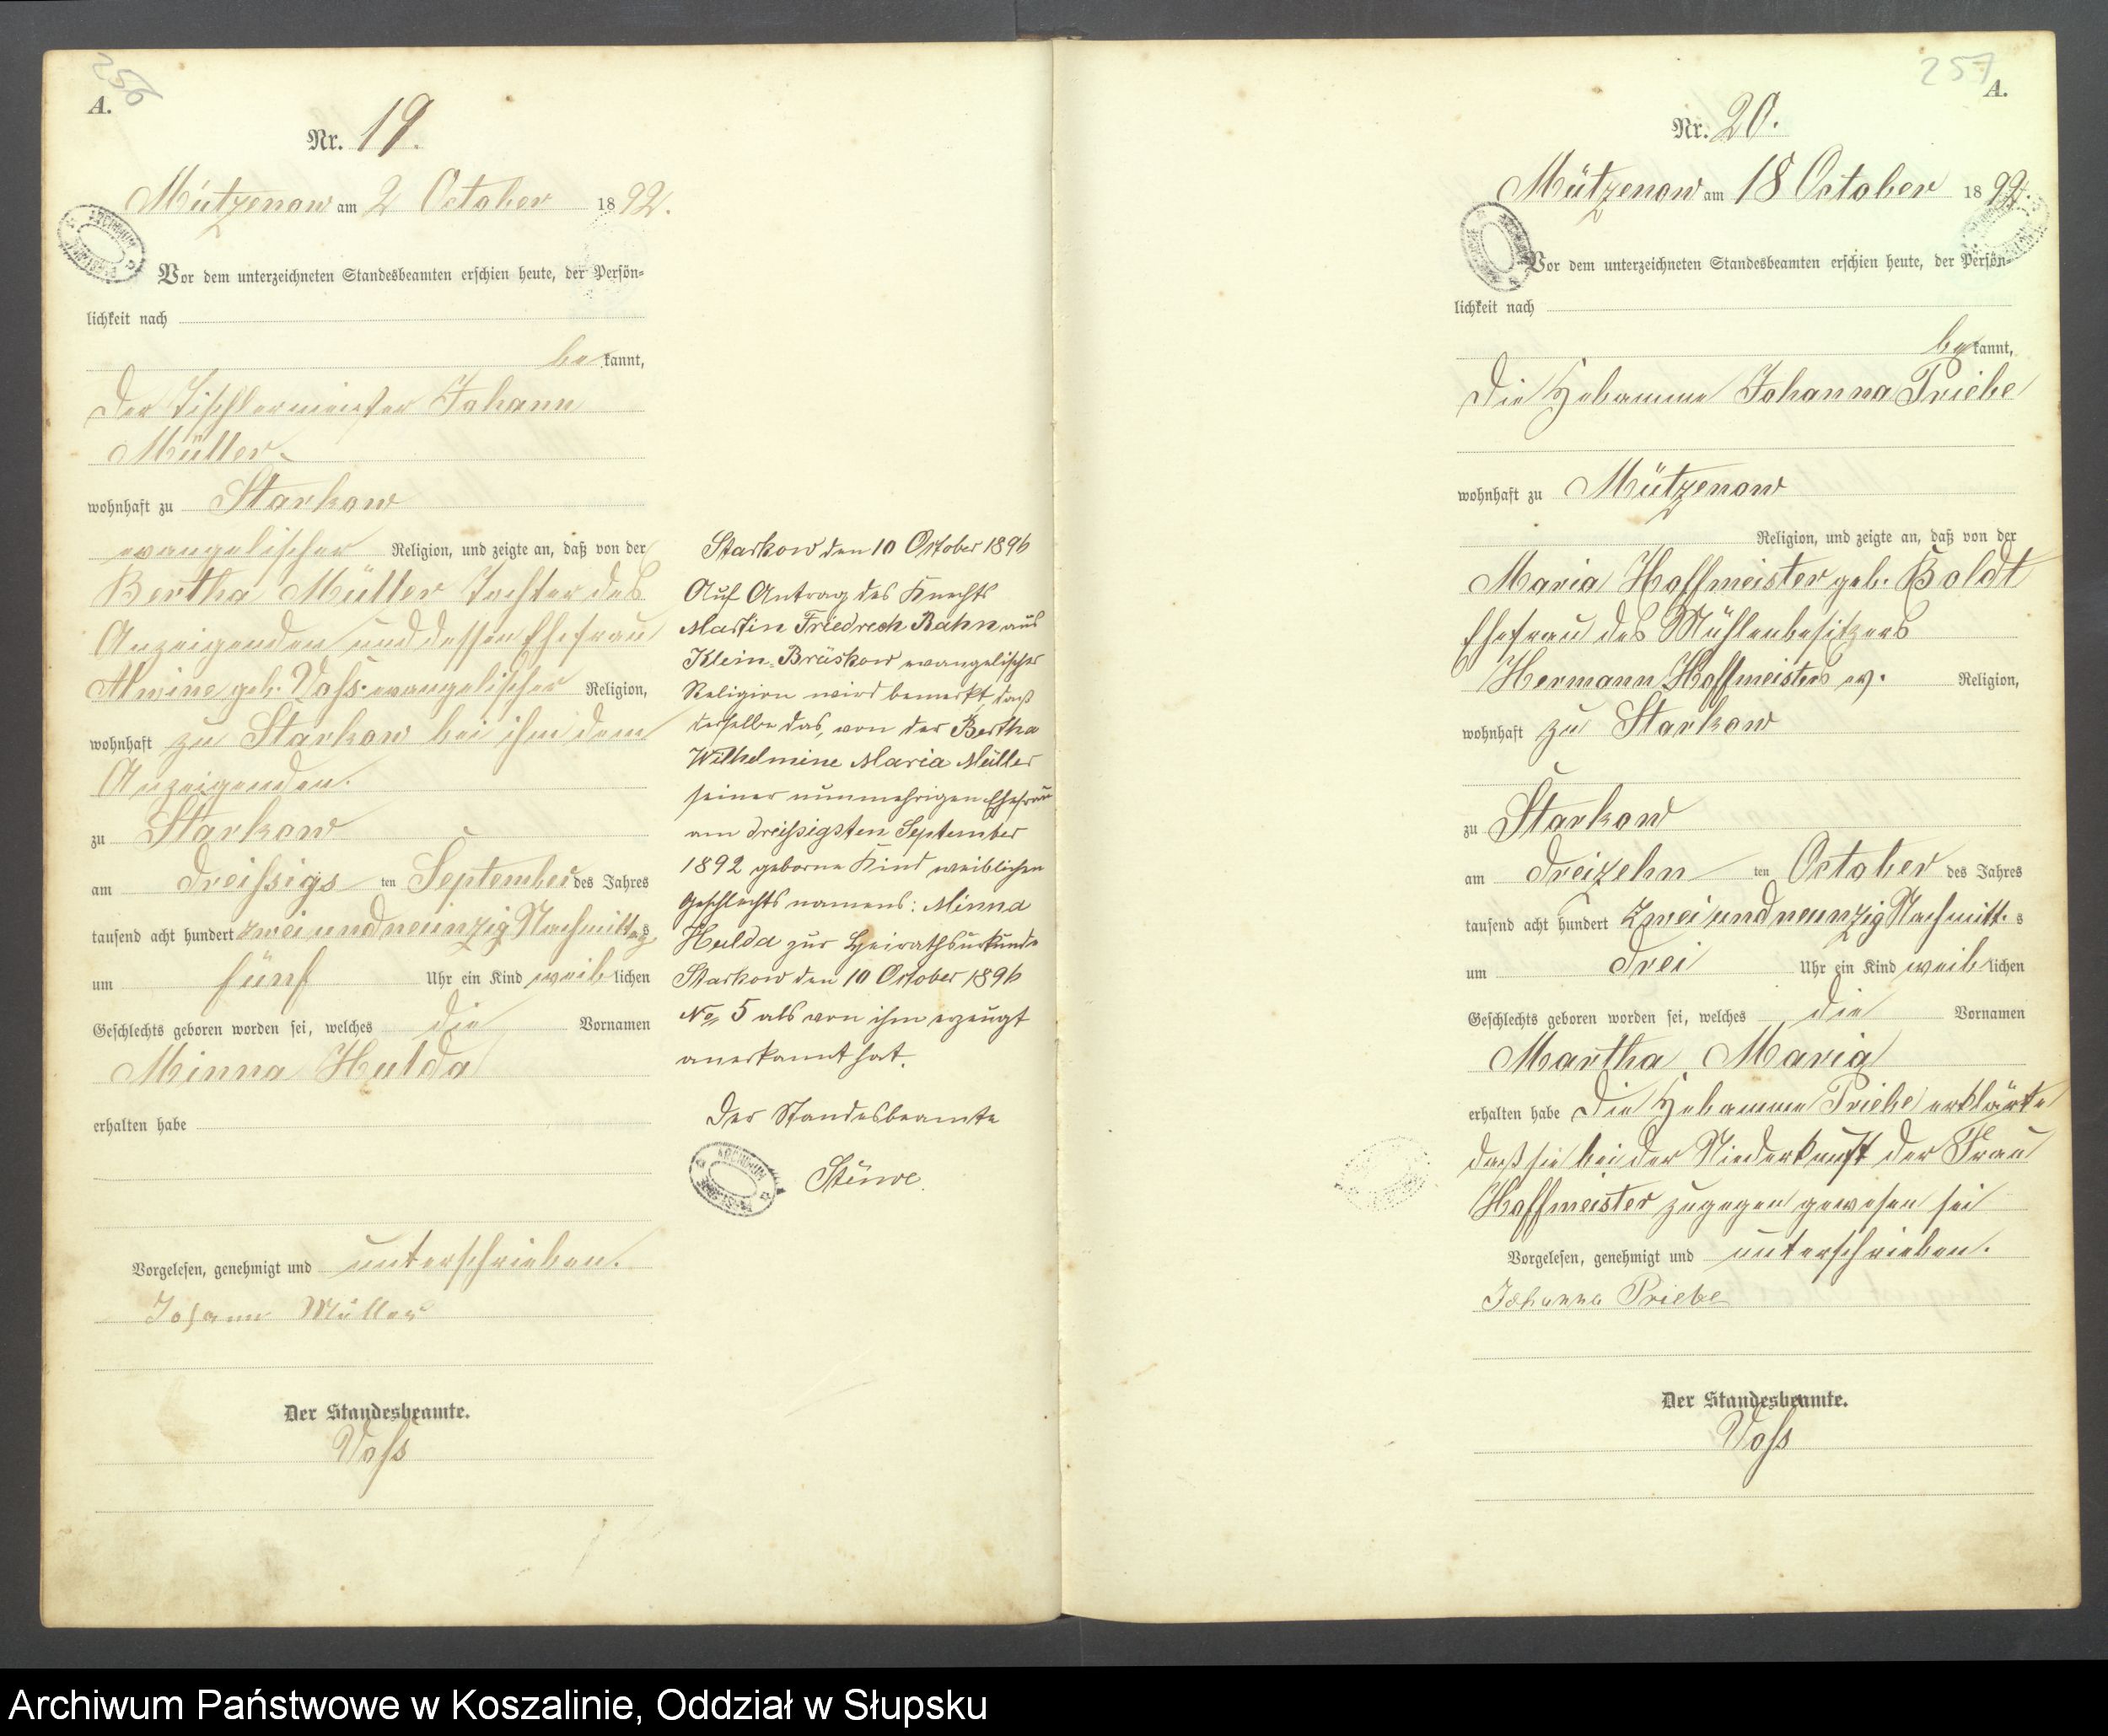 256
A.
Nr. 19.
Mützenow am 2 October 1892.
Vor dem unterzeichneten Standesbeamten erschien heute, der Persön-
lichkeit nach
bekannt,
der Tischlermeister Johann
Müller
wohnhaft zu Starkow
evangelischer Religion, und zeigte an, daß von der
Bertha Müller Tochter des
Anzeigenden und dessen Ehefrau
Alwine geb. Voß evangelischer Religion,
wohnhaft zu Starkow bei ihm dem
Anzeigenden.
zu Starkow
am dreißigsten September des Jahres
tausend acht hundert zwei und neunzig Nachmittags
um fünf Uhr ein Kind weiblichen
Geschlechts geboren worden sei, welches die Vornamen
Minna Hulda
erhalten habe
Vorgelesen, genehmigt und unterschrieben.
Johann Müller
Der Standesbeamte.
Voß
Starkow den 10 October 1896
Auf Antrag des Knechts
Martin Friedrech Bahn aus
Klein-Brüskow evangelischer
Religion wird bemerkt, daß
derselbe das, von der Bertha
Wilhelmine Maria Müller
seiner nunmehrigen Ehefrau
am dreißigsten September
1892 geborne Kind weiblichen
Geschlechts namens: Minna
Hulda zur Heirathsurkunde
Starkow den 10 October 1896
No 5 als von ihm erzeugt
anerkannt hat.
Der Standesbeamte
ARCHIWUM
Stüwe.
257
A.
Nr. 20.
Mützenow am 18 October 1892.
Vor dem unterzeichneten Standesbeamten erschien heute, der Persön-
lichkeit nach
bekannt,
die Hebamme Johanna Priebe
wohnhaft zu Mützenow
Religion, und zeigte an, daß von der
Maria Hoffmeister geb. Boldt
Ehefrau des Mühlenbesitzers
Hermann Hoffmeister ev. Religion,
wohnhaft zu Starkow
zu Starkow
am dreizehnten October des Jahres
tausend acht hundert zwei und neunzig Nachmitt.s
um drei Uhr ein Kind weiblichen
Geschlechts geboren worden sei, welches die Vornamen
Martha Maria
erhalten habe die Hebamme Priebe erklärte
daß sie bei der Niederkunft der Frau
Hoffmeister zugegen gewesen sei
Vorgelesen, genehmigt und unterschrieben.
Johanna Priebe
Der Standesbeamte.
Voß
Archiwum Państwowe w Koszalinie, Oddział w Słupsku